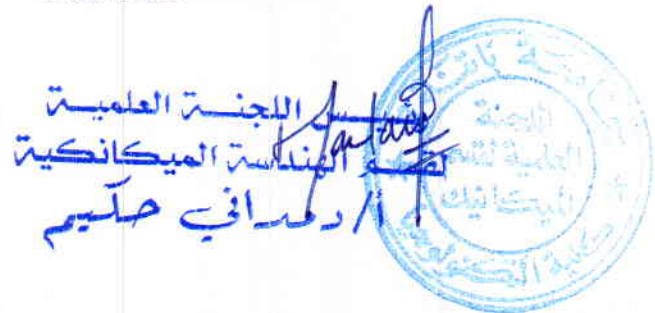 رئيس اللجنة العلمية
لقسم الهندسة الميكانيكية
أ/د حكيم
جامعة باتنة
اللجنة
العلمية لقسم
الميكانيك
كلية التكنولوجيا